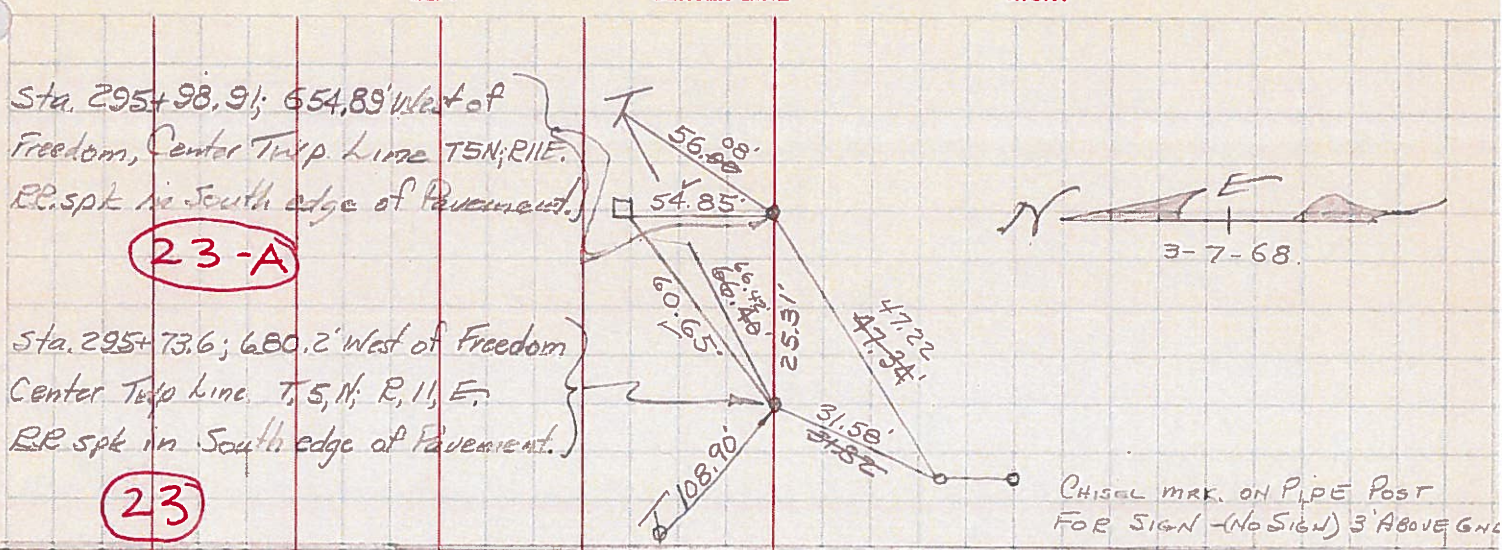 Sta. 295+98.91; 654.89' West of
Freedom, Center Twp. Line T5N; R11E.
RR. spk in South edge of Pavement.
23-A
Sta. 295+73.6; 680.2' West of Freedom
Center Twp Line T, 5, N; R, 11, E.
RR. spk in South edge of Pavement.
23
56.00 08'
54.85'
60.65'
66.42'
66.40'
25.31'
47.22
47.34'
31.58'
31.82
108.90'
N E
3-7-68.
CHISEL MRK. ON PIPE POST
FOR SIGN -(NO SIGN) 3' ABOVE GND